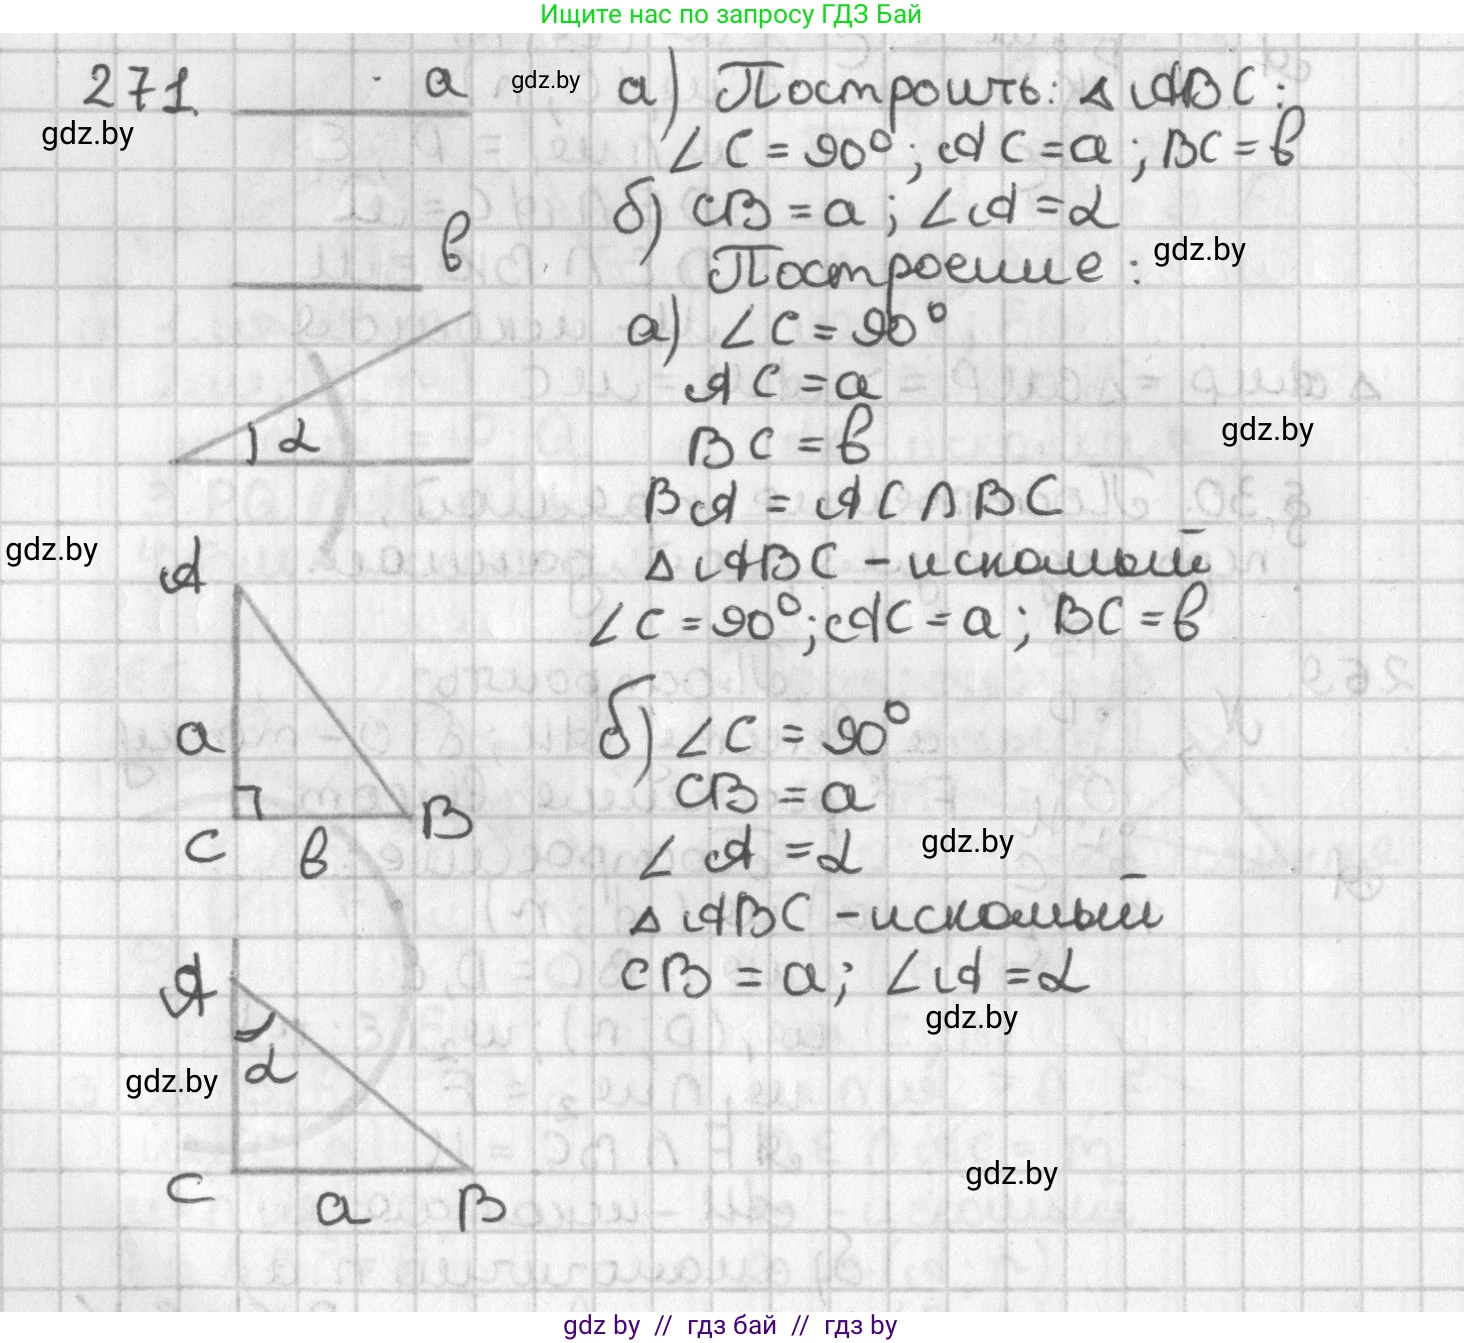 Ищите нас по запросу ГДЗ Бай
271.
a
gdz.by
а) Построить: △ABC:
gdz.by
∠C = 90°; AC = a; BC = в
б) CB = a; ∠A = α
в
gdz.by
Построение:
а) ∠C = 90°
AC = a
gdz.by
α
BC = в
BA = AC ∩ BC
gdz.by
A
△ABC - искомый
∠C = 90°; AC = a; BC = в
a
б) ∠C = 90°
CB = a
B
C
в
gdz.by
∠A = α
△ABC - искомый
A
CB = a; ∠A = α
gdz.by
gdz.by
α
gdz.by
C
a
B
gdz by // гдз бай // гдз by